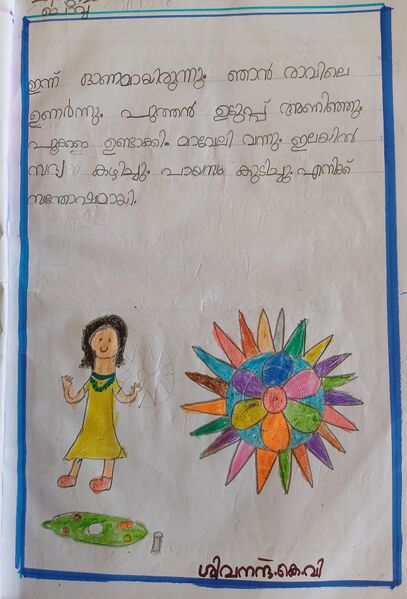 ഇന്ന് ഓണമായിരുന്നു. ഞാൻ രാവിലെ
ഉണർന്നു. പുത്തൻ ഉടുപ്പ് അണിഞ്ഞു.
പൂക്കളം ഉണ്ടാക്കി. മാവേലി വന്നു. ഇലയിൽ
സദ്യ കഴിച്ചു. പായസം കുടിച്ചു. എനിക്ക്
സന്തോഷമായി.
ശിവനന്ദ.കെ.വി